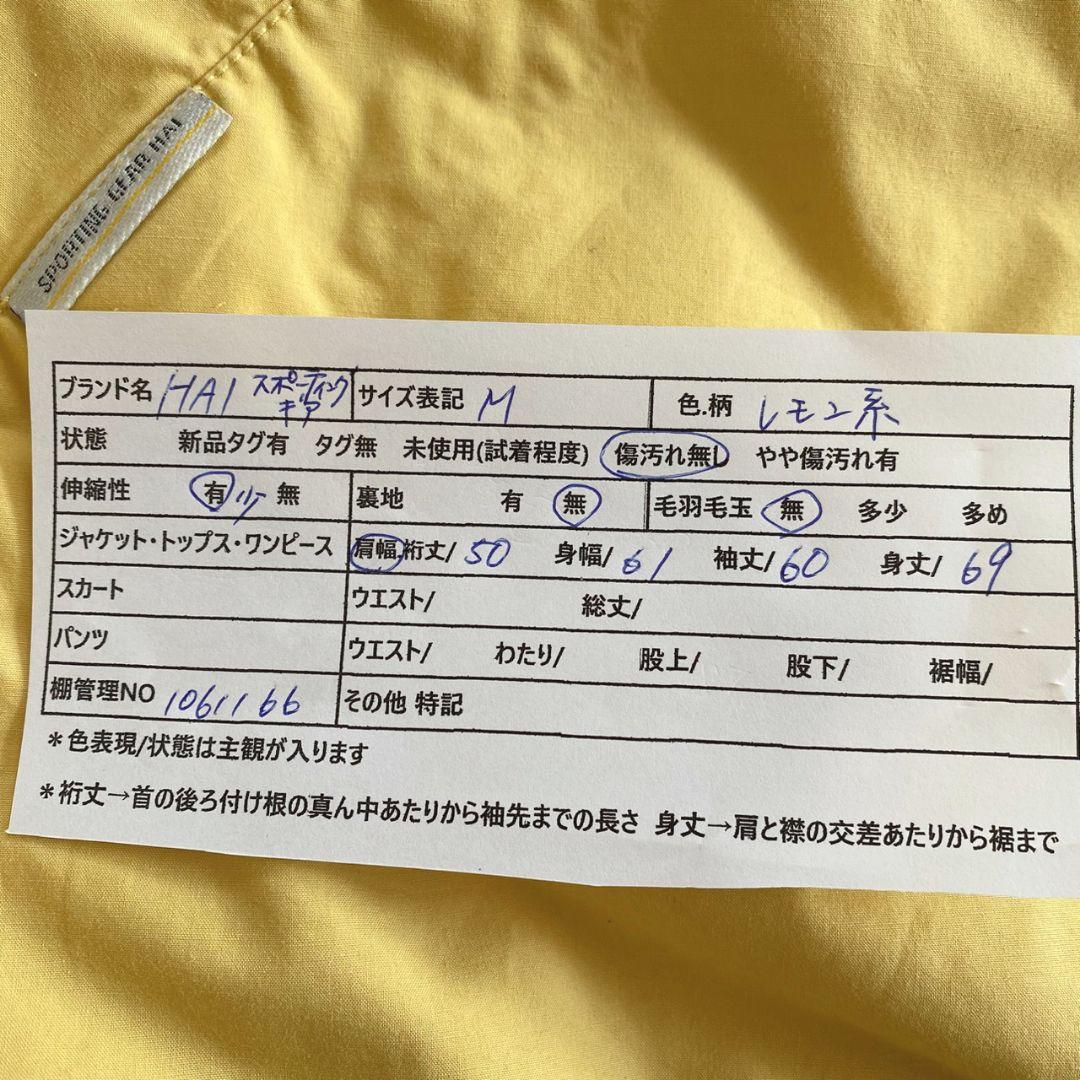 SPORTING GEAR HAI
ブランド名 HAI スポーティング ギア サイズ表記 M 色.柄 レモン系
状態 新品タグ有 タグ無 未使用(試着程度) 傷汚れ無し やや傷汚れ有
伸縮性 有 少 無 裏地 有 無 毛羽毛玉 無 多少 多め
ジャケット・トップス・ワンピース 肩幅.裄丈/ 50 身幅/ 61 袖丈/ 60 身丈/ 69
スカート ウエスト/ 総丈/
パンツ ウエスト/ わたり/ 股上/ 股下/ 裾幅/
棚管理NO 1061166 その他 特記
*色表現/状態は主観が入ります
*裄丈→首の後ろ付け根の真ん中あたりから袖先までの長さ 身丈→肩と襟の交差あたりから裾まで